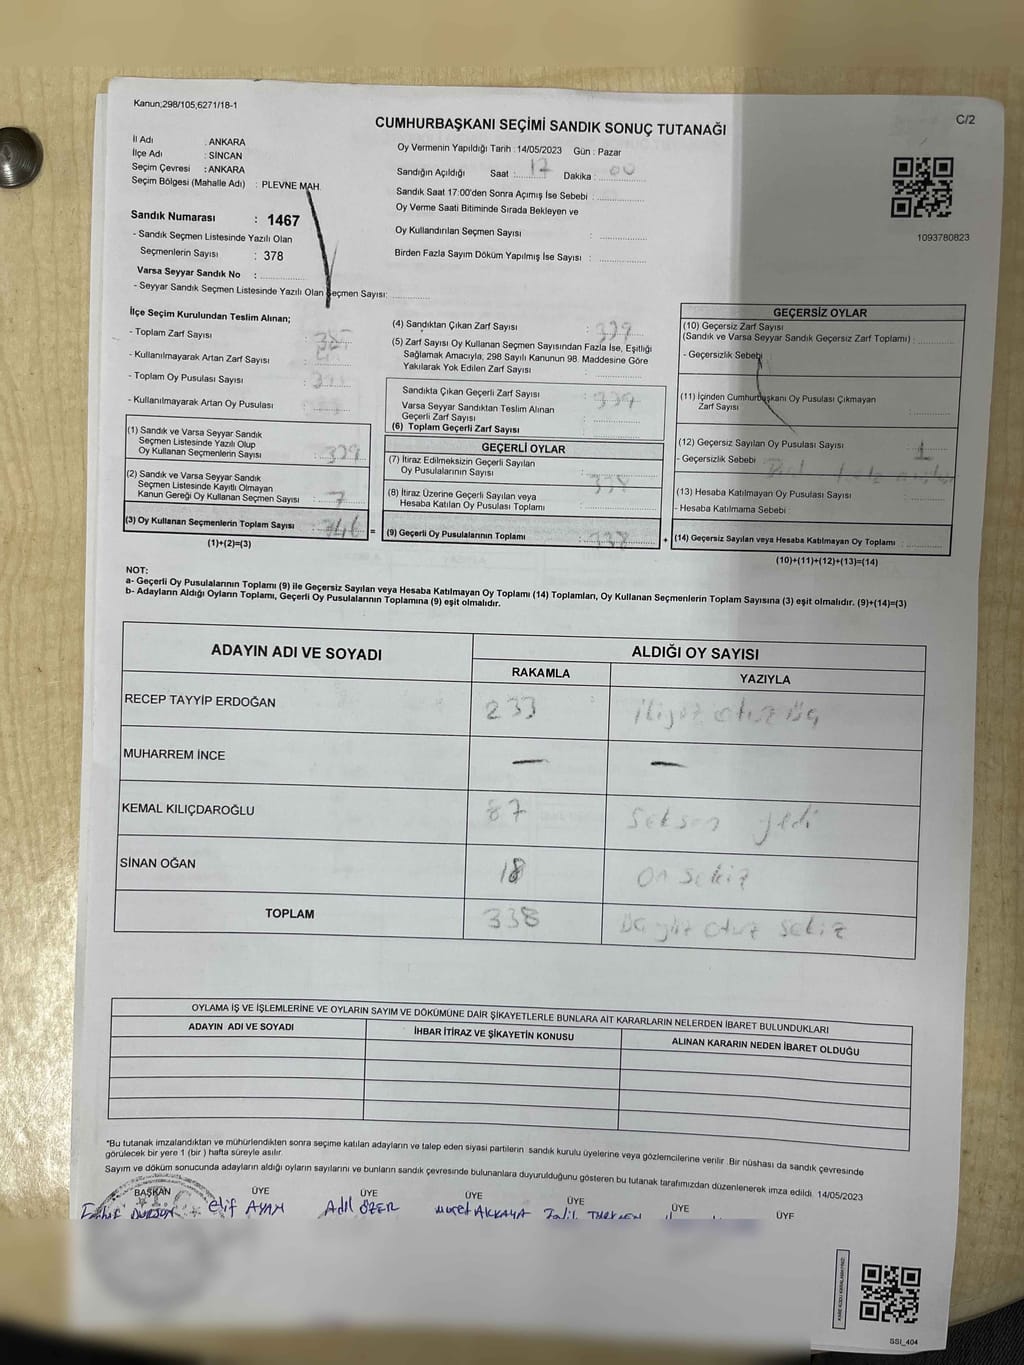 Kanun;298/105,6271/18-1
C/2
CUMHURBAŞKANI SEÇİMİ SANDIK SONUÇ TUTANAĞI
İl Adı : ANKARA
İlçe Adı : SİNCAN
Seçim Çevresi : ANKARA
Seçim Bölgesi (Mahalle Adı) : PLEVNE MAH.
Oy Vermenin Yapıldığı Tarih : 14/05/2023 Gün : Pazar
Sandığın Açıldığı Saat : 17 Dakika : 00
Sandık Saat 17:00'den Sonra Açımış İse Sebebi :
Oy Verme Saati Bitiminde Sırada Bekleyen ve
Oy Kullandırılan Seçmen Sayısı :
Birden Fazla Sayım Döküm Yapılmış İse Sayısı :
1093780823
Sandık Numarası : 1467
- Sandık Seçmen Listesinde Yazılı Olan
Seçmenlerin Sayısı : 378
Varsa Seyyar Sandık No :
- Seyyar Sandık Seçmen Listesinde Yazılı Olan Seçmen Sayısı:
İlçe Seçim Kurulundan Teslim Alınan;
- Toplam Zarf Sayısı :
- Kullanılmayarak Artan Zarf Sayısı :
- Toplam Oy Pusulası Sayısı :
- Kullanılmayarak Artan Oy Pusulası :
(1) Sandık ve Varsa Seyyar Sandık
Seçmen Listesinde Yazılı Olup
Oy Kullanan Seçmenlerin Sayısı :
(2) Sandık ve Varsa Seyyar Sandık
Seçmen Listesinde Kayıtlı Olmayan
Kanun Gereği Oy Kullanan Seçmen Sayısı : 7
(3) Oy Kullanan Seçmenlerin Toplam Sayısı : 346 =
(1)+(2)=(3)
(4) Sandıktan Çıkan Zarf Sayısı : 339
(5) Zarf Sayısı Oy Kullanan Seçmen Sayısından Fazla İse, Eşitliği
Sağlamak Amacıyla, 298 Sayılı Kanunun 98. Maddesine Göre
Yakılarak Yok Edilen Zarf Sayısı :
Sandıkta Çıkan Geçerli Zarf Sayısı : 339
Varsa Seyyar Sandıktan Teslim Alınan
Geçerli Zarf Sayısı :
(6) Toplam Geçerli Zarf Sayısı :
GEÇERLİ OYLAR
(7) İtiraz Edilmeksizin Geçerli Sayılan
Oy Pusulalarının Sayısı : 338
(8) İtiraz Üzerine Geçerli Sayılan veya
Hesaba Katılan Oy Pusulası Toplamı :
(9) Geçerli Oy Pusulalarının Toplamı : 338 +
GEÇERSİZ OYLAR
(10) Geçersiz Zarf Sayısı
(Sandık ve Varsa Seyyar Sandık Geçersiz Zarf Toplamı) :
- Geçersizlik Sebebi
(11) İçinden Cumhurbaşkanı Oy Pusulası Çıkmayan
Zarf Sayısı
(12) Geçersiz Sayılan Oy Pusulası Sayısı : 1
- Geçersizlik Sebebi
(13) Hesaba Katılmayan Oy Pusulası Sayısı :
- Hesaba Katılmama Sebebi :
(14) Geçersiz Sayılan veya Hesaba Katılmayan Oy Toplamı :
(10)+(11)+(12)+(13)=(14)
NOT:
a- Geçerli Oy Pusulalarının Toplamı (9) ile Geçersiz Sayılan veya Hesaba Katılmayan Oy Toplamı (14) Toplamları, Oy Kullanan Seçmenlerin Toplam Sayısına (3) eşit olmalıdır. (9)+(14)=(3)
b- Adayların Aldığı Oyların Toplamı, Geçerli Oy Pusulalarının Toplamına (9) eşit olmalıdır.
ADAYIN ADI VE SOYADI ALDIĞI OY SAYISI
RAKAMLA YAZIYLA
RECEP TAYYİP ERDOĞAN 233 ikiyüz otuz üç
MUHARREM İNCE — —
KEMAL KILIÇDAROĞLU 87 Seksen yedi
SİNAN OĞAN 18 On sekiz
TOPLAM 338 Üç yüz otuz sekiz
OYLAMA İŞ VE İŞLEMLERİNE VE OYLARIN SAYIM VE DÖKÜMÜNE DAİR ŞİKAYETLERLE BUNLARA AİT KARARLARIN NELERDEN İBARET BULUNDUKLARI
ADAYIN ADI VE SOYADI İHBAR İTİRAZ VE ŞİKAYETİN KONUSU ALINAN KARARIN NEDEN İBARET OLDUĞU
*Bu tutanak imzalandıktan ve mühürlendikten sonra seçime katılan adayların ve talep eden siyasi partilerin sandık kurulu üyelerine veya gözlemcilerine verilir. Bir nüshası da sandık çevresinde
görülecek bir yere 1 (bir ) hafta süreyle asılır.
Sayım ve döküm sonucunda adayların aldığı oyların sayılarını ve bunların sandık çevresinde bulunanlara duyurulduğunu gösteren bu tutanak tarafımızdan düzenlenerek imza edildi. 14/05/2023
BAŞKAN ÜYE ÜYE ÜYE ÜYE ÜYE ÜYE
DURSUN Elif AYAN Adil ÖZER Murat AKKAYA
SSI_404